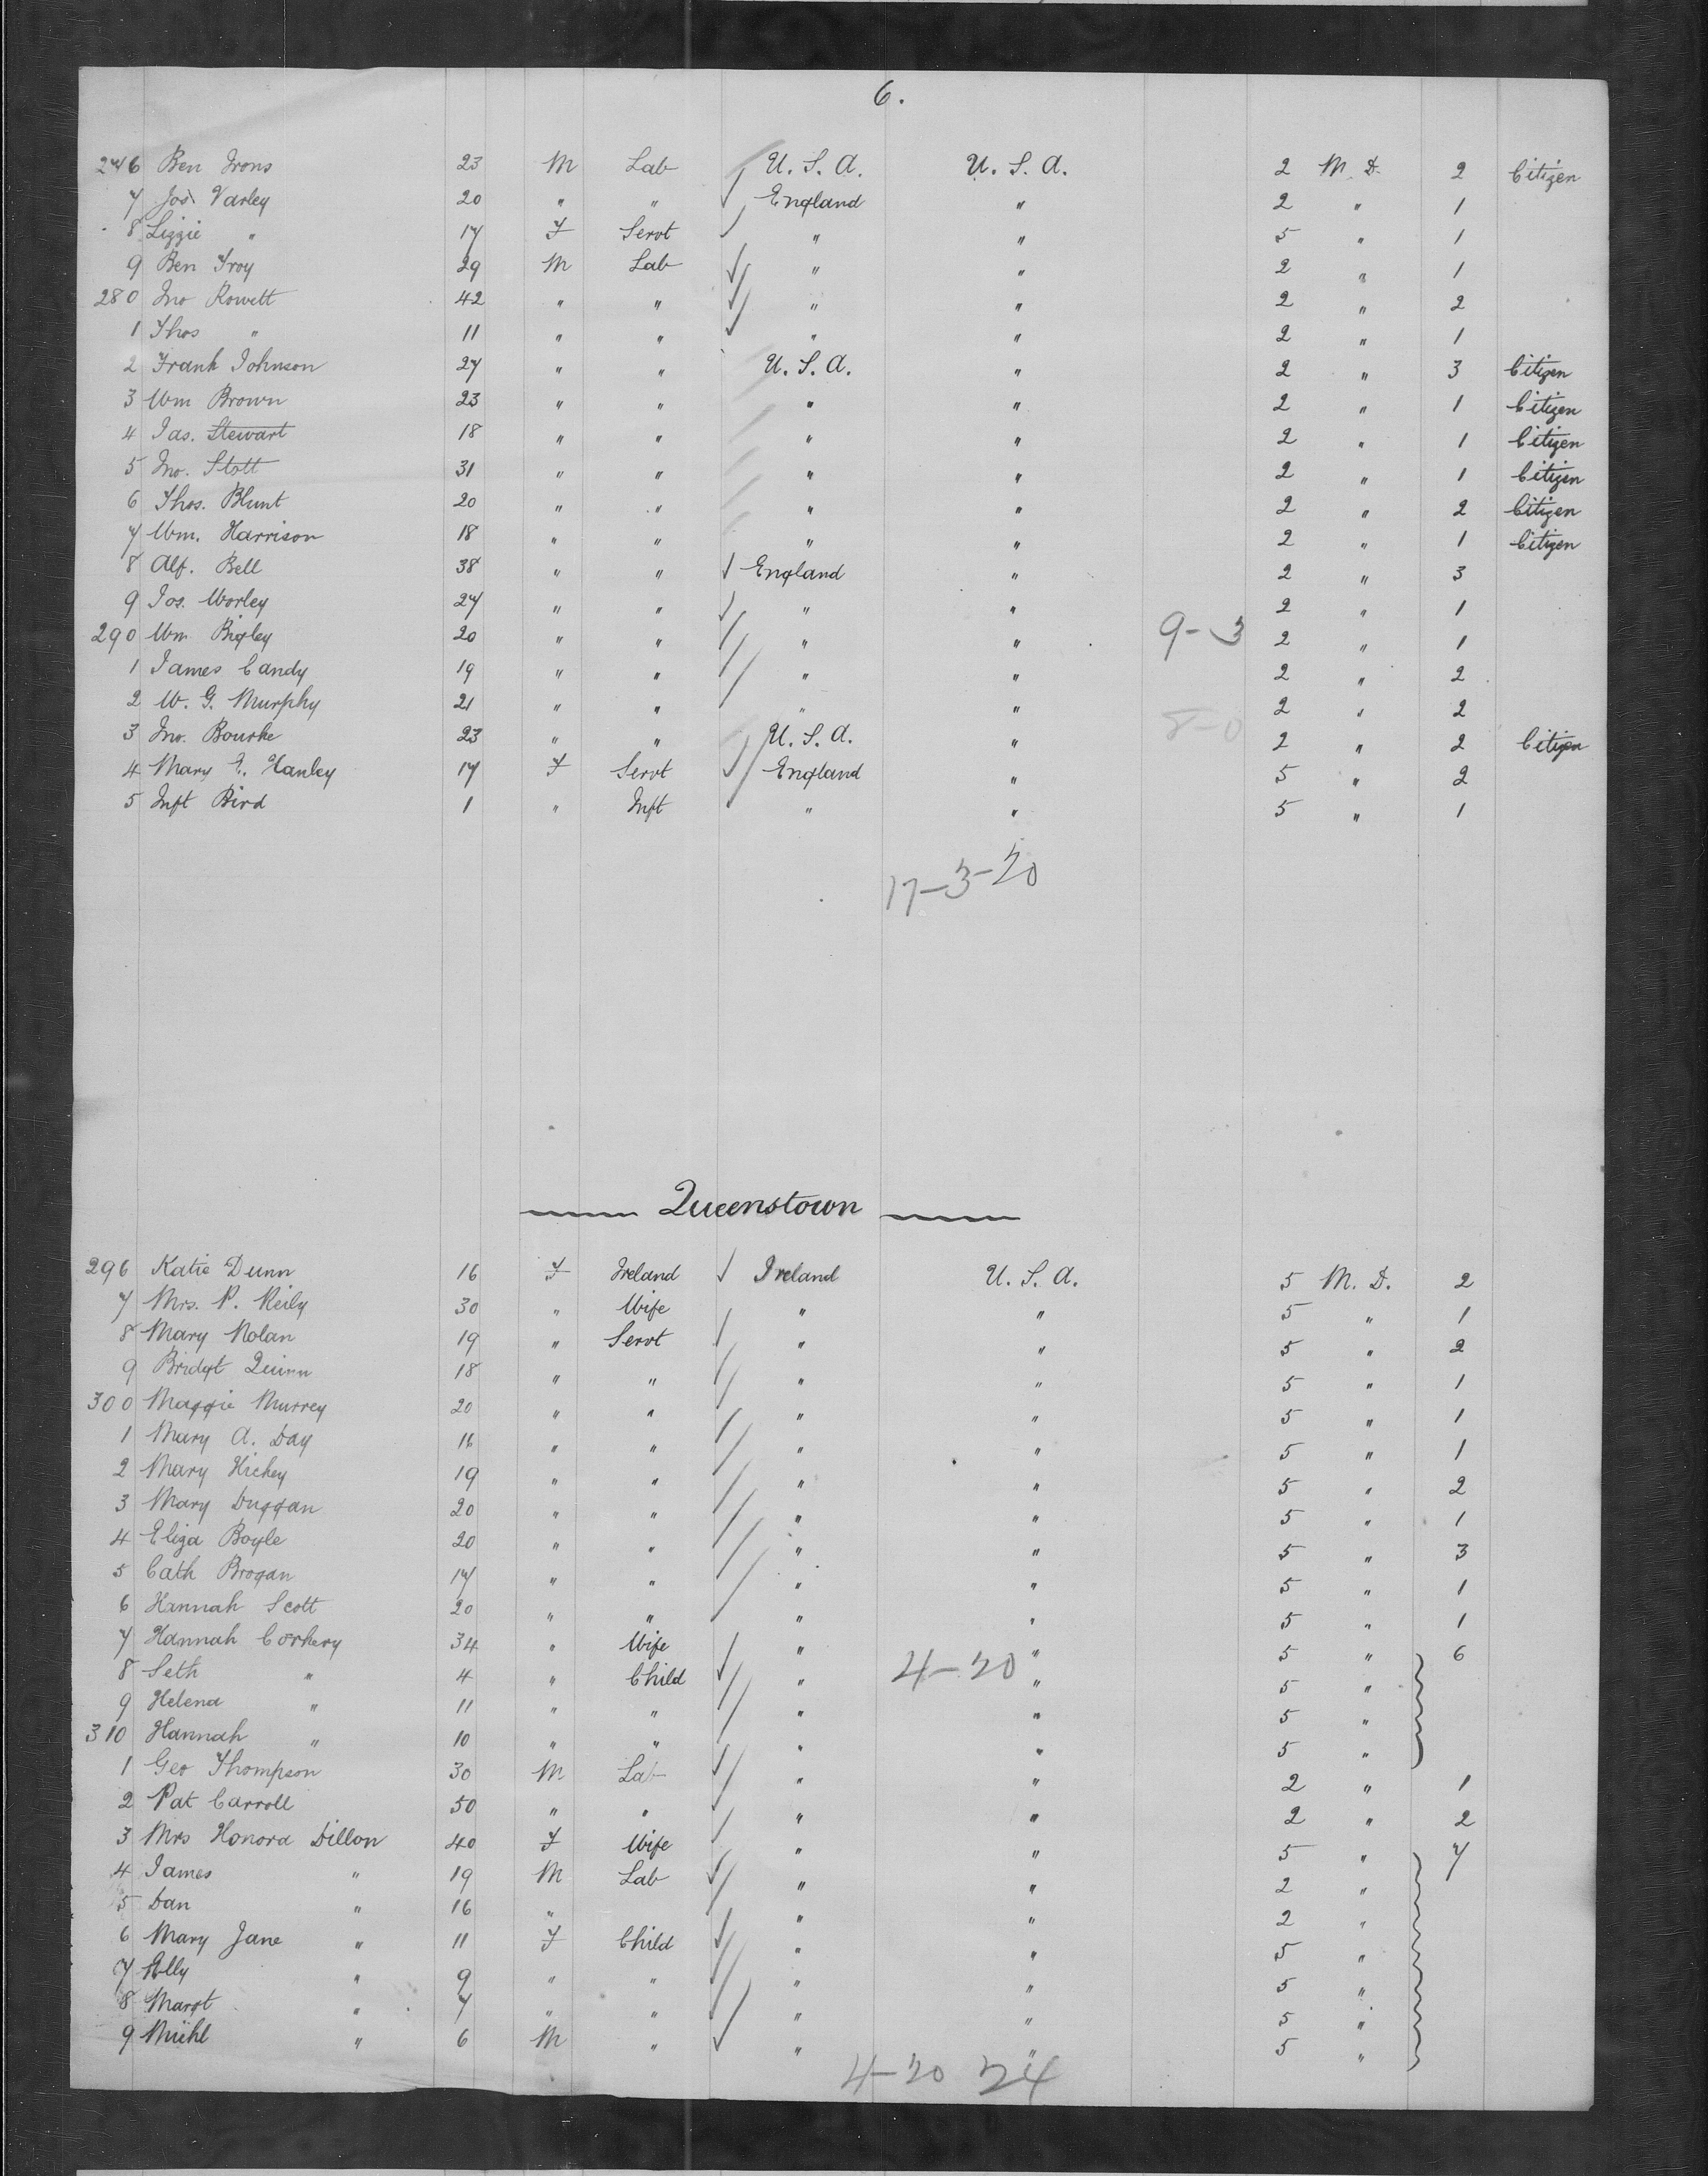 6.
276 Ben Irons 23 M Lab U. S. A. U. S. A. 2 M. D. 2 Citizen
7 Jos. Varley 20 " " England " 2 " 1
8 Lizzie " 17 F Servt " " 5 " 1
9 Ben Troy 29 M Lab " " 2 " 1
280 Jno Rowett 42 " " " " 2 " 2
1 Thos " 11 " " " " 2 " 1
2 Frank Johnson 27 " " U. S. A. " 2 " 3 Citizen
3 Wm Brown 23 " " " " 2 " 1 Citizen
4 Jas. Stewart 18 " " " " 2 " 1 Citizen
5 Jno. Stott 31 " " " " 2 " 1 Citizen
6 Thos. Blunt 20 " " " " 2 " 2 Citizen
7 Wm. Harrison 18 " " " " 2 " 1 Citizen
8 Alf. Bell 38 " " England " 2 " 3
9 Jos. Worley 27 " " " " 2 " 1
290 Wm Bigley 20 " " " " 9-3 2 " 1
1 James Candy 19 " " " " 2 " 2
2 W. G. Murphy 21 " " " " 2 " 2
3 Jno. Bourke 23 " " U. S. A. " 8-0 2 " 2 Citizen
4 Mary E. Hanley 17 F Servt England " 5 " 2
5 Inft Bird 1 " Inft " " 5 " 1
17-3-20
Queenstown
296 Katie Dunn 16 F Ireland Ireland U. S. A. 5 M. D. 2
7 Mrs. P. Reily 30 " Wife " " 5 " 1
8 Mary Nolan 19 " Servt " " 5 " 2
9 Bridgt Quinn 18 " " " " 5 " 1
300 Maggie Murrey 20 " " " " 5 " 1
1 Mary A. Day 16 " " " " 5 " 1
2 Mary Hickey 19 " " " " 5 " 2
3 Mary Duggan 20 " " " " 5 " 1
4 Eliza Boyle 20 " " " " 5 " 3
5 Cath Brogan 17 " " " " 5 " 1
6 Hannah Scott 20 " " " " 5 " 1
7 Hannah Corkery 34 " Wife " " 5 " 6
8 Seth " 4 " Child " 4-20 " 5 "
9 Helena " 11 " " " " 5 "
310 Hannah " 10 " " " " 5 "
1 Geo Thompson 30 M Lab " " 2 " 1
2 Pat Carroll 50 " " " " 2 " 2
3 Mrs Honora Dillon 40 F Wife " " 5 " 7
4 James " 19 M Lab " " 2 "
5 Dan " 16 " " " 2 "
6 Mary Jane " 11 F Child " " 5 "
7 Ally " 9 " " " " 5 "
8 Margt " 7 " " " " 5 "
9 Michl " 6 M " " " 5 "
4-20 24